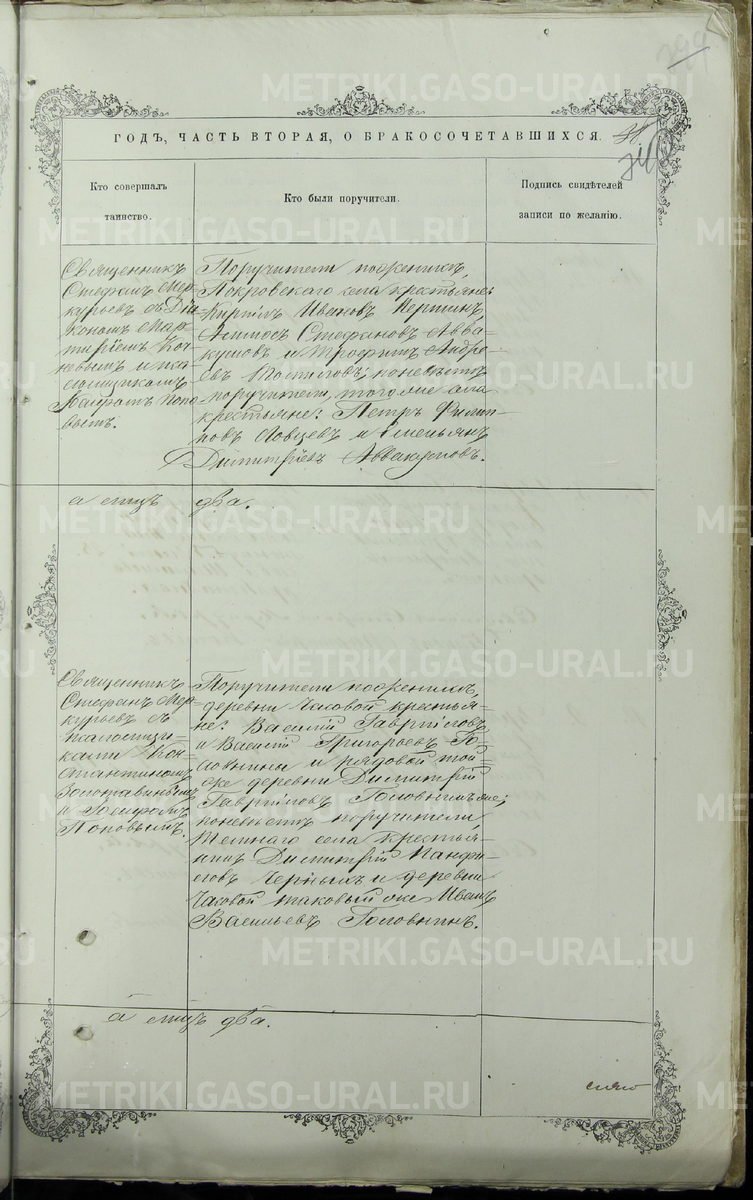 ГОДЪ, ЧАСТЬ ВТОРАЯ, О БРАКОСОЧЕТАВШИХСЯ.
Кто совершалъ
таинство.
Кто были поручители.
Подпись свидѣтелей
записи по желанію.
Священникъ
Стефанъ Мер-
курьевъ съ Діа-
кономъ Мар-
тиріемъ Коч-
невымъ и пса-
ломщикомъ
Попо-
вымъ.
Поручители по женихѣ,
Покровскаго села крестьяне:
Кириллъ Ивановъ Першинъ,
Стефановъ Авва-
кумовъ и Трофимъ Андре-
евъ по невѣстѣ
поручители, того же села
крестьяне: Петръ Филип-
повъ Ловцевъ и Емельянъ
Димитріевъ Аввакумовъ.
а етщъ два.
Священникъ
Стефанъ Мер-
курьевъ съ
псаломщи-
ками Кон-
стантиномъ
и
Поповымъ.
Поручители по женихѣ,
деревни Часовой крестья-
не: Василій Гавриловъ
и Василій Григорьевъ Го-
ловнины и рядовой той
же деревни Димитрій
Гавриловъ Головнинъ же;
по невѣстѣ поручители,
Темнаго села крестья-
нинъ Димитрій Панфи-
ловъ Черныхъ и деревни
Часовой таковый же Иванъ
Васильевъ Головнинъ.
а етщъ два.
METRIKI.GASO-URAL.RU